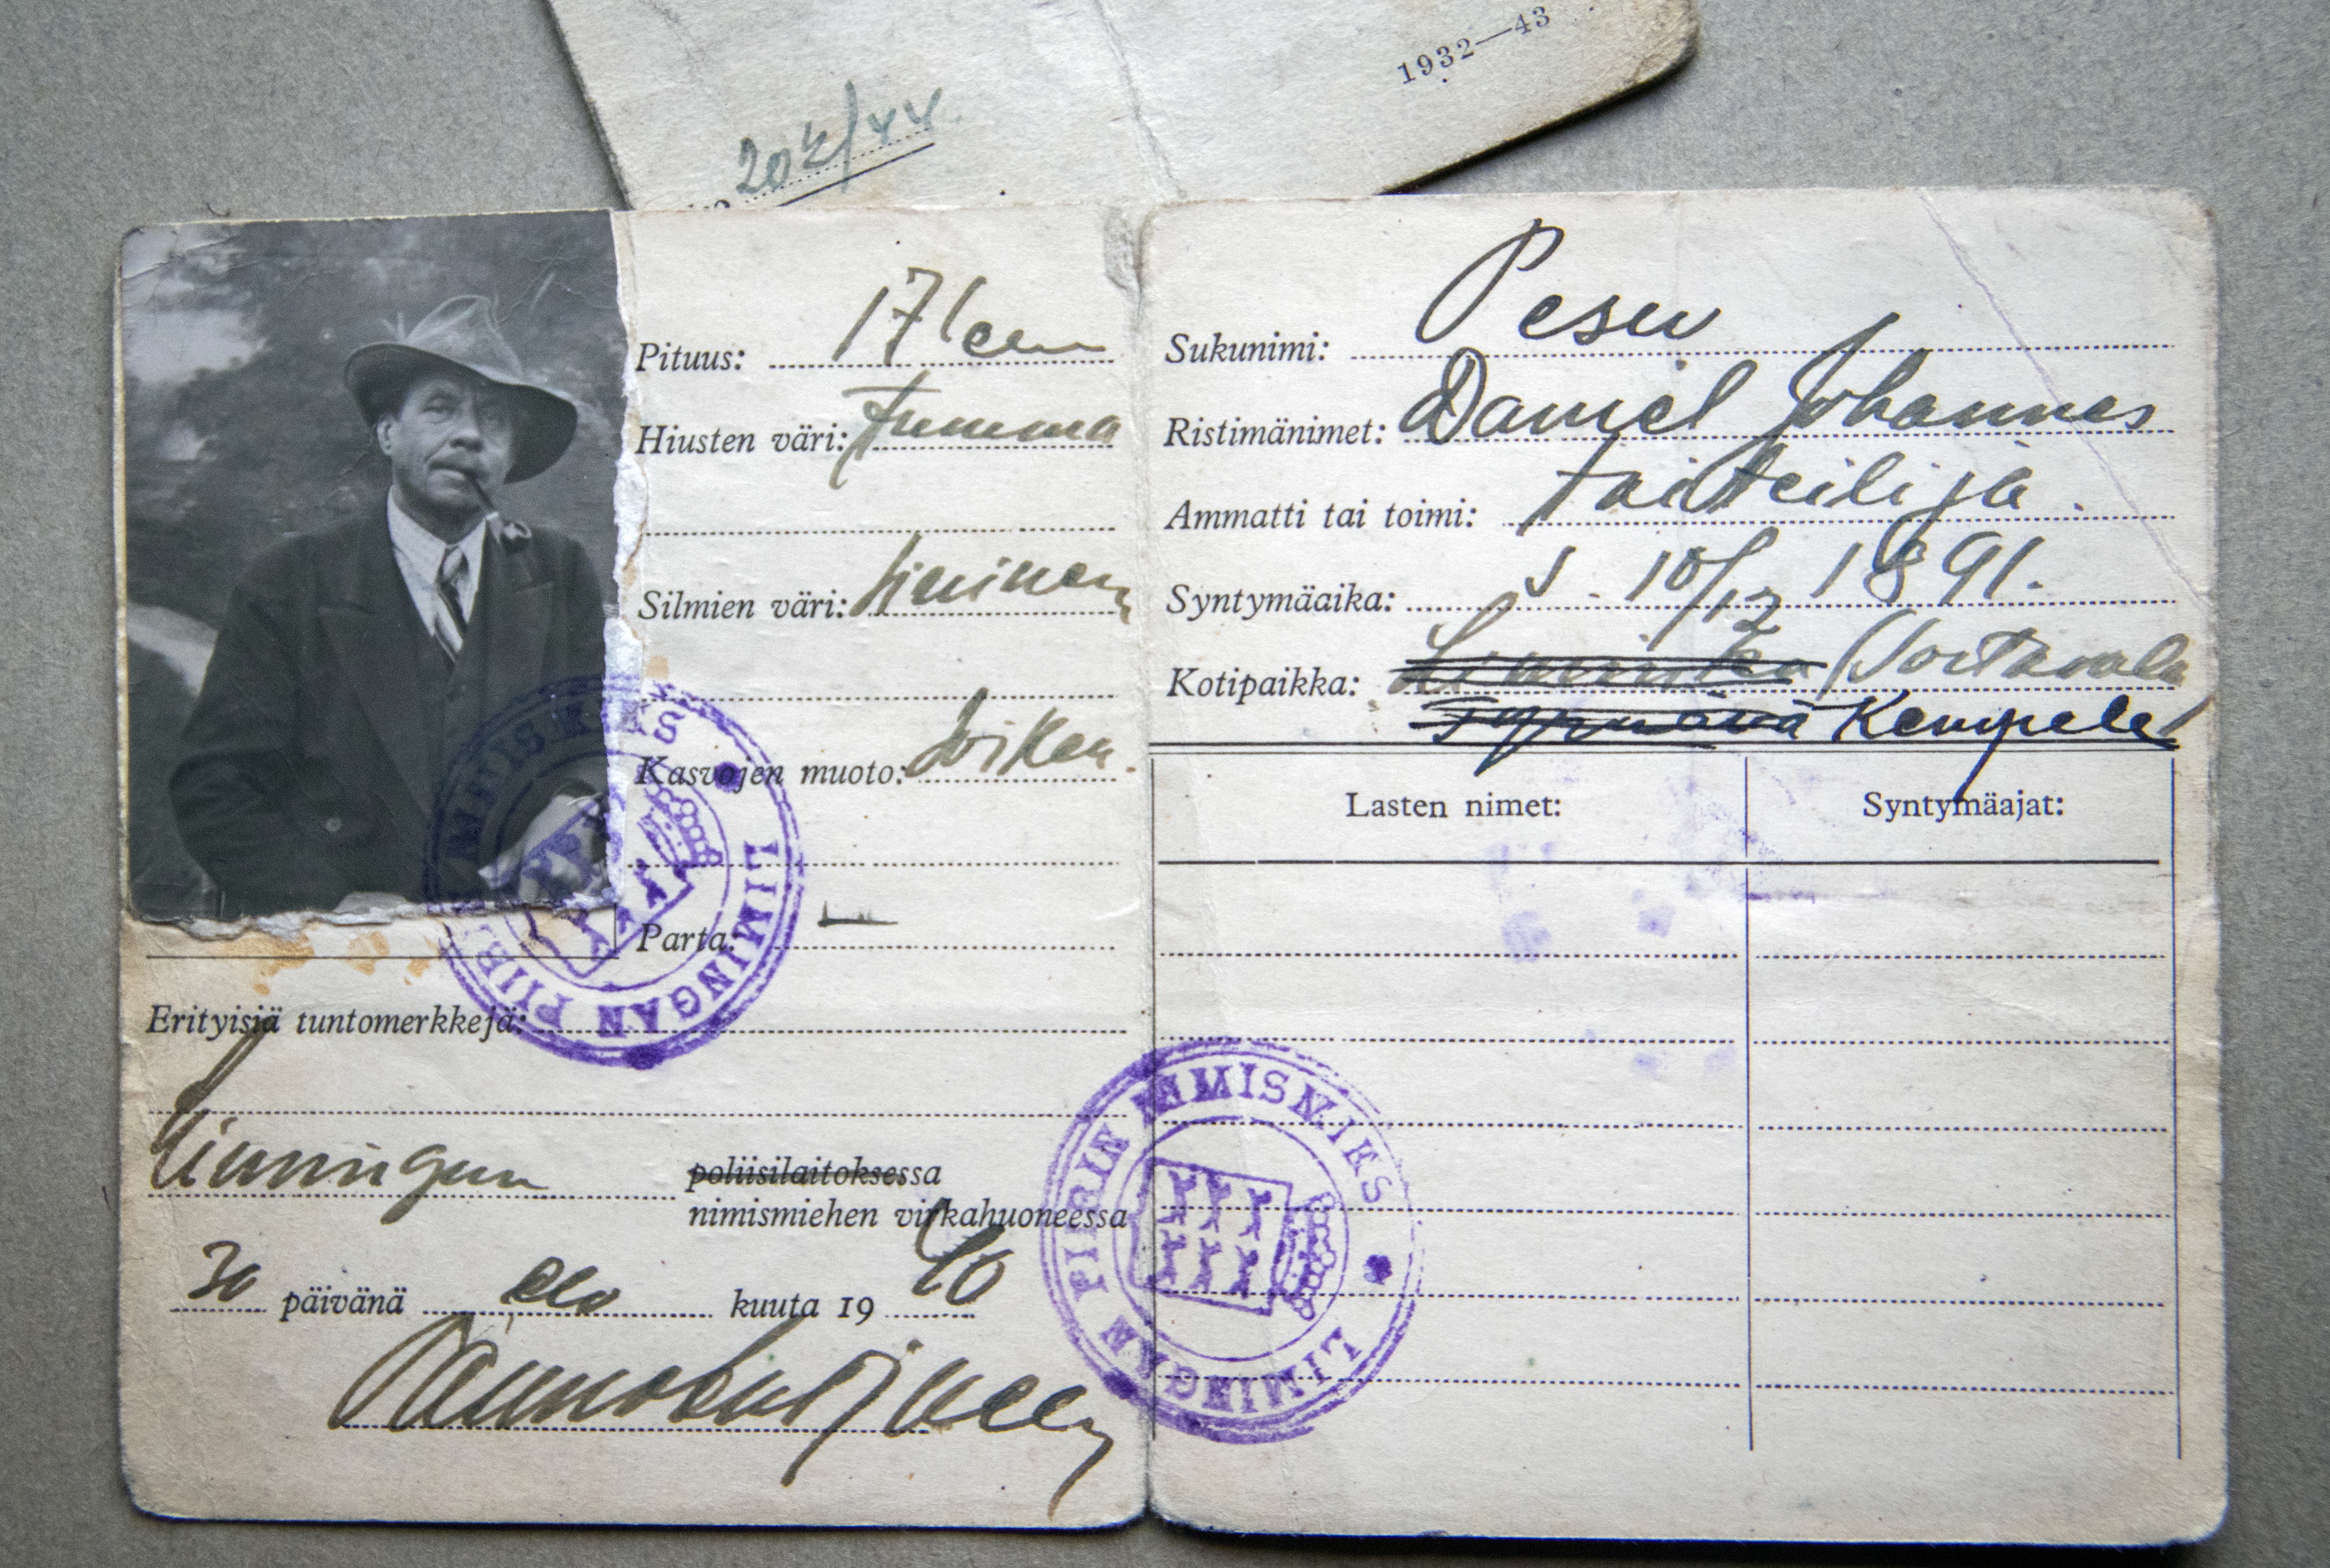 1932—43
Pituus: 171 cm
Hiusten väri: tumma
Silmien väri: sininen
Kasvojen muoto: soikea
Parta: —
Erityisiä tuntomerkkejä:
Limingan poliisilaitoksessa
nimismiehen virkahuoneessa
30 päivänä elo kuuta 19 40
LIMINGAN PIIRIN NIMISMIES
Sukunimi: Pesu
Ristimänimet: Daniel Johannes
Ammatti tai toimi: taiteilija.
Syntymäaika: s. 10/12 1891.
Kotipaikka: Liminka (Sortavala
Tyrnävä Kempele)
Lasten nimet: Syntymäajat:
LIMINGAN PIIRIN NIMISMIES